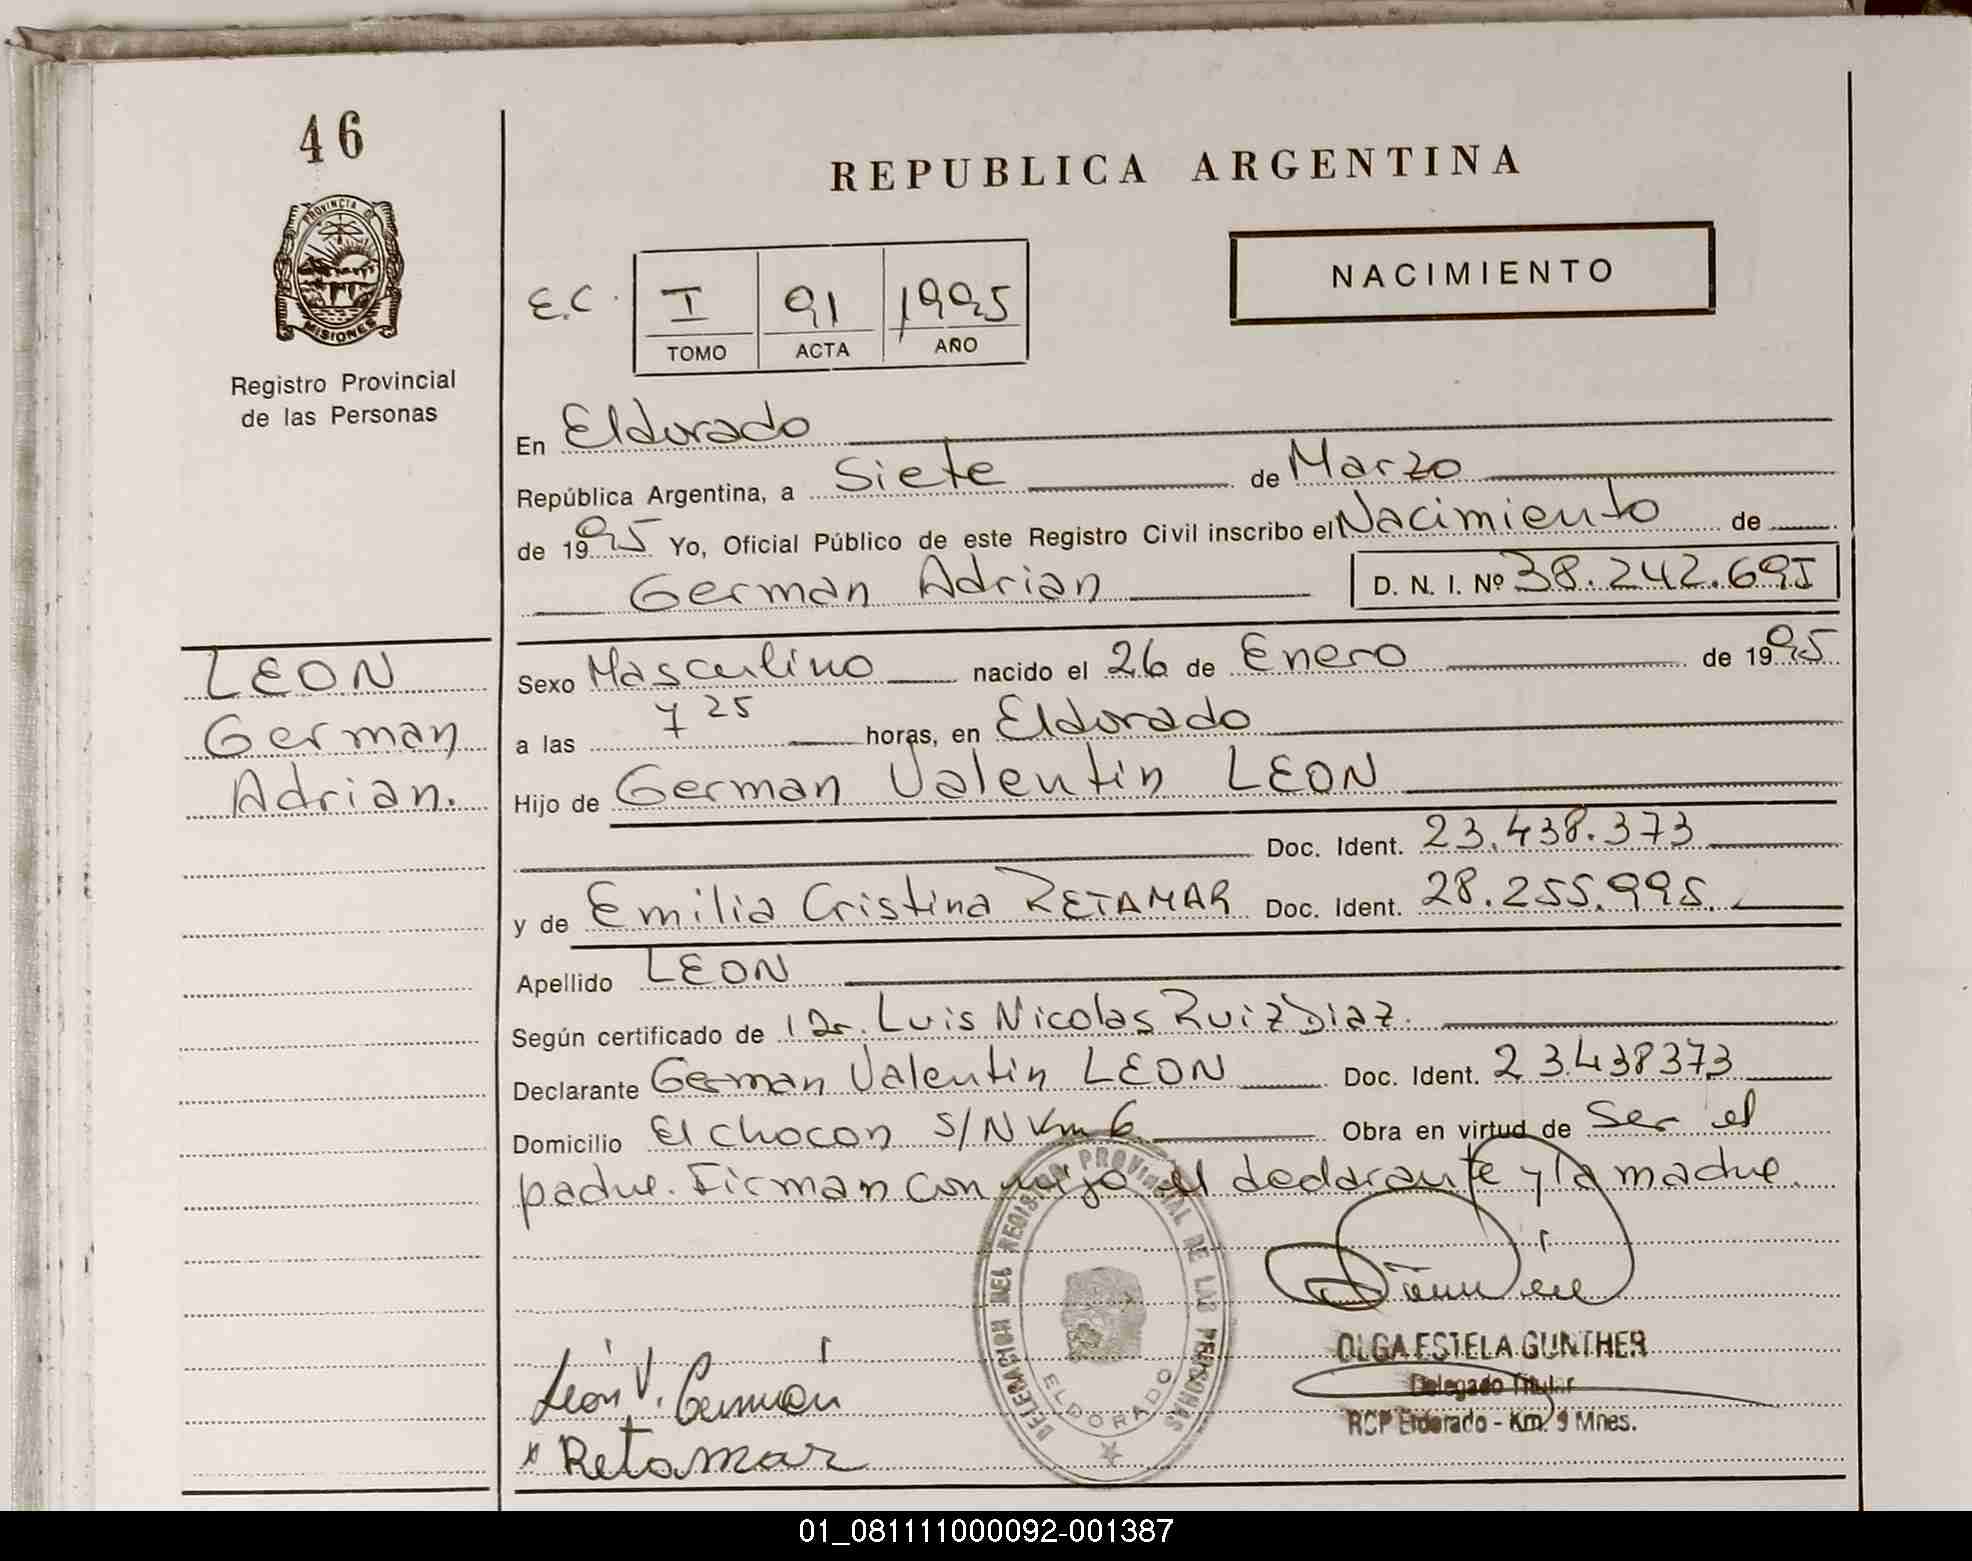 46
REPUBLICA ARGENTINA
PROVINCIA DE MISIONES
NACIMIENTO
E.C. I 91 1995
TOMO ACTA AÑO
Registro Provincial
de las Personas
En Eldorado
República Argentina, a Siete de Marzo
de 1995 Yo, Oficial Público de este Registro Civil inscribo el Nacimiento de
German Adrian D. N. I. Nº 38.242.691
LEON
German
Adrian.
Sexo Masculino nacido el 26 de Enero de 1995
a las 7 25 horas, en Eldorado
Hijo de German Valentin LEON
Doc. Ident. 23.438.373
y de Emilia Cristina RETAMAR Doc. Ident. 28.255.995.
Apellido LEON
Según certificado de Dr. Luis Nicolas Ruiz Diaz.
Declarante German Valentin LEON Doc. Ident. 23438373
Domicilio El chocon S/N Km 6 Obra en virtud de Ser el
padre. Firman con migo el declarante y la madre.
DELEGACION DEL REGISTRO PROVINCIAL DE LAS PERSONAS
ELDORADO
OLGA ESTELA GUNTHER
Delegado Titular
RCP Eldorado - Km. 9 Mnes.
León V. Germán
x Retamar
01_081111000092-001387